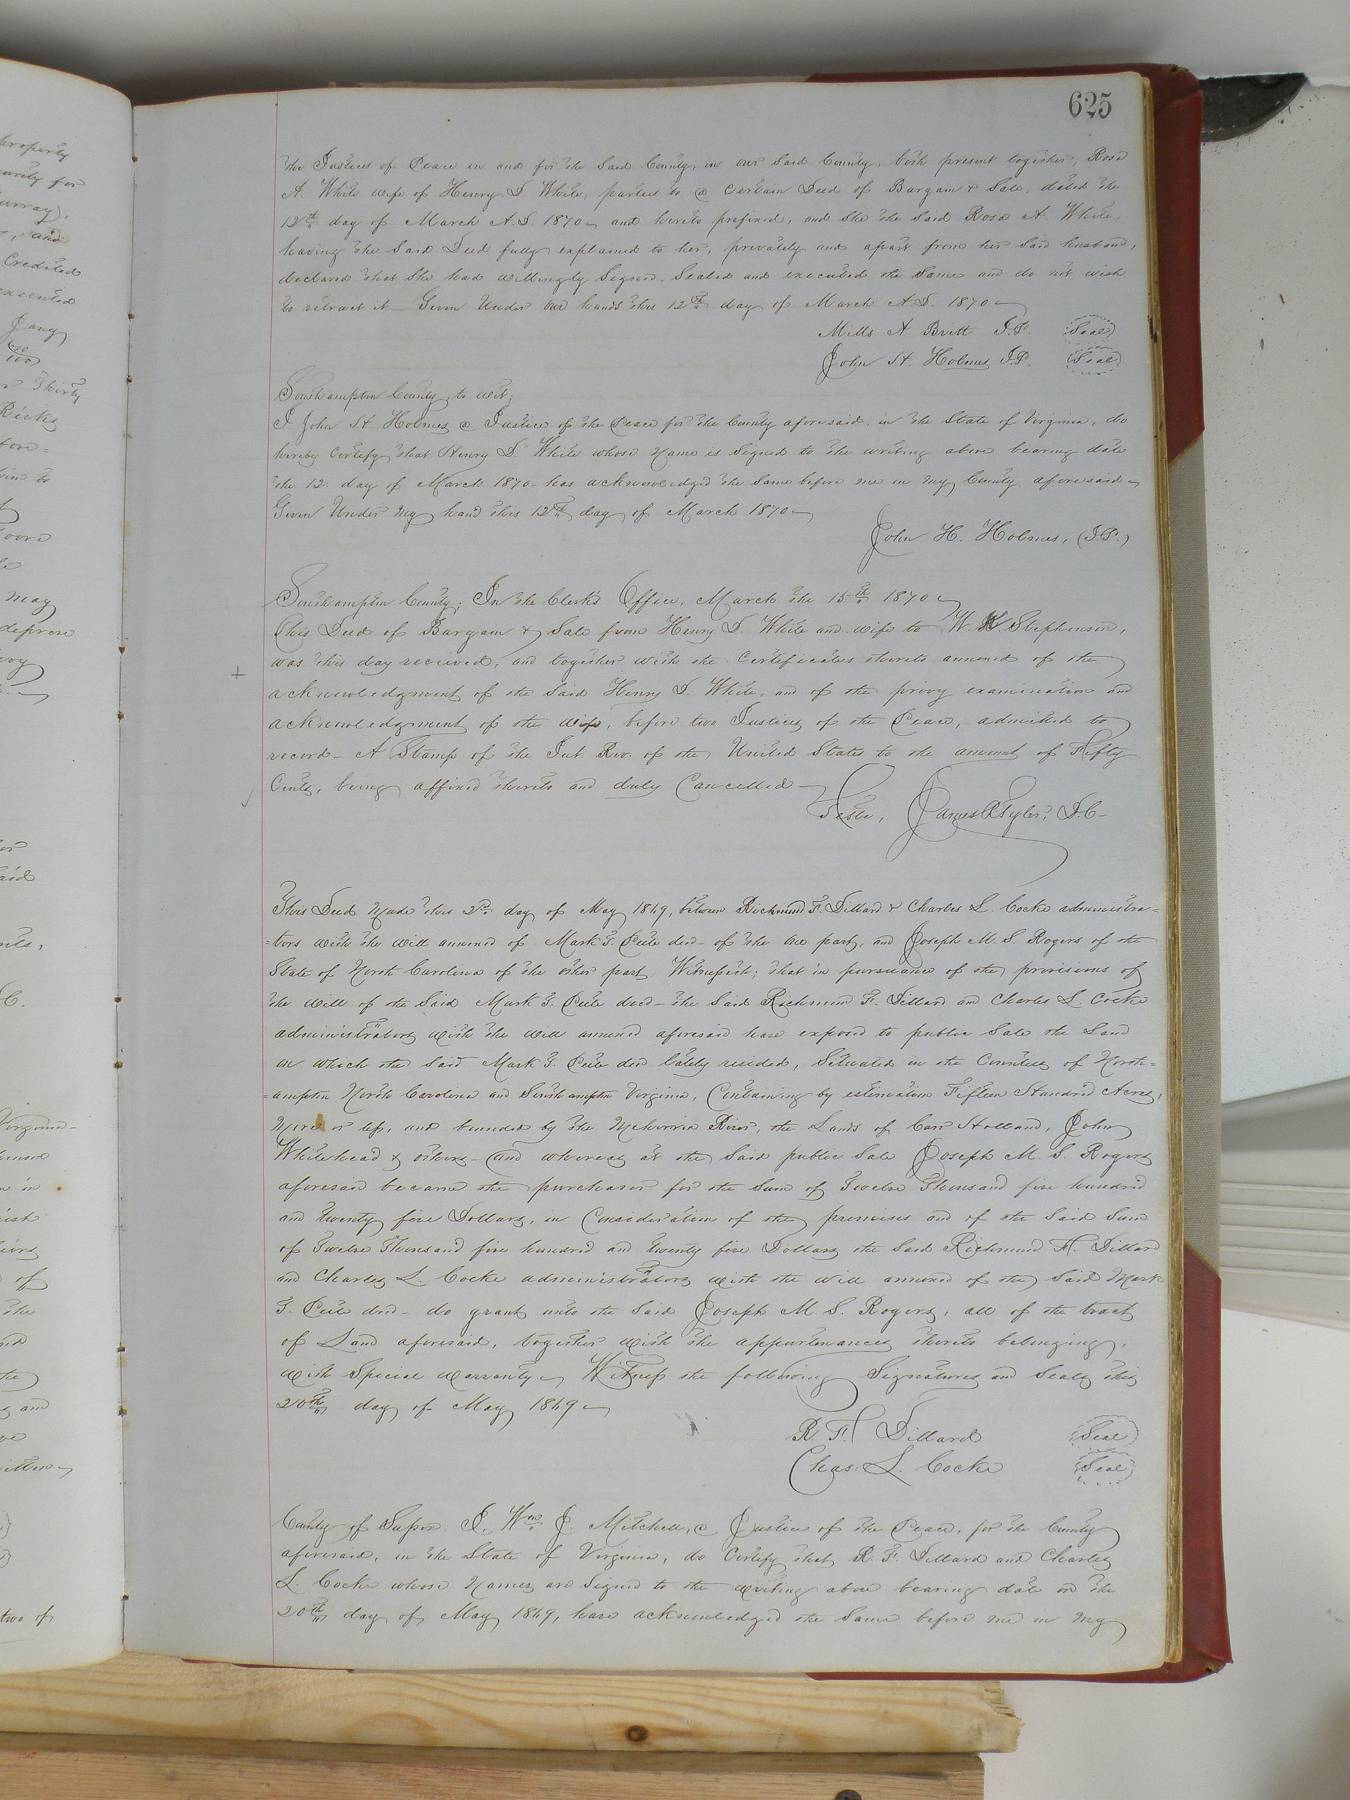 625
the Justices of Peace in and for the Said County, in our Said County, both present together, Rosa
A. White wife of Henry D. White, parties to a certain Deed of Bargain & Sale, dated the
12th day of March A.D. 1870 and hereto prefixed, and She the Said Rosa A. White,
having the Said Deed fully explained to her, privately and apart from her Said husband,
declared that She had willingly Signed, Sealed and executed the Same and do not wish
to retract it — Given Under our hands this 12th day of March A.D. 1870
Mills A Britt J.P. (Seal)
John H. Holmes J.P. (Seal)
Southampton County, to wit;
I John H Holmes a Justice of the Peace for the County aforesaid, in the State of Virginia, do
hereby Certify that Henry D. White whose Name is Signed to the writing above bearing date
the 12. day of March 1870 has acknowledged the Same before me in my County aforesaid
Given Under My hand this 12th day of March 1870
John H. Holmes, (J.P.)
Southampton County; In the Clerk's Office, March the 15th 1870
This Deed of Bargain & Sale from Henry D. White and wife to W. Stephenson,
was this day received, and together with the Certificates thereto annexed of the
acknowledgment of the Said Henry D. White, and of the privy examination and
acknowledgment of the wife, before two Justices of the Peace, admitted to
record — A Stamp of the Int. Rev. of the United States to the amount of Fifty
Cents, being affixed thereto and duly Cancelled
Teste, James R Tyler, D.C.
This Deed Made this day of May 1869, between Richmond F. Dillard & Charles L. Cocke administra=
=tors with the will annexed of Mark T. Pete decd — of the one part, and Joseph M. S. Rogers of the
State of North Carolina of the other part. Witnesseth; that in pursuance of the provisions of
the will of the Said Mark T. Pete decd — the Said Richmond F. Dillard and Charles L. Cocke
administrators with the will annexed aforesaid have exposed to public Sale the Land
on which the Said Mark T. Pete decd lately resided, Situated in the Counties of North=
=ampton North Carolina and Southampton Virginia, Containing by estimation Fifteen Hundred Acres,
More or less, and bounded by the Meherrin River, the Lands of Carr Holland, John
Whitehead & others — and whereas at the Said public Sale Joseph M. S. Rogers
aforesaid became the purchaser for the Sum of Twelve Thousand five hundred
and twenty five Dollars, in Consideration of the premises and of the Said Sum
of Twelve Thousand five hundred and twenty five Dollars the Said Richmond F. Dillard
and Charles L Cocke administrators with the will annexed of the Said Mark
T. Pete decd — do grant unto the Said Joseph M. S. Rogers, all of the tract
of Land aforesaid, together with the appurtenances thereto belonging,
with Special warranty. Witness the following Signatures and Seals this
20th day of May 1869
R. F. Dillard (Seal)
Chas. L. Cocke (Seal)
County of Sussex I. Wm J. Mitchell, a Justice of the Peace, for the County
aforesaid, in the State of Virginia, do Certify that R. F. Dillard and Charles
L. Cocke whose Names are Signed to the writing above bearing date on the
20th day of May 1869, have acknowledged the Same before me in my